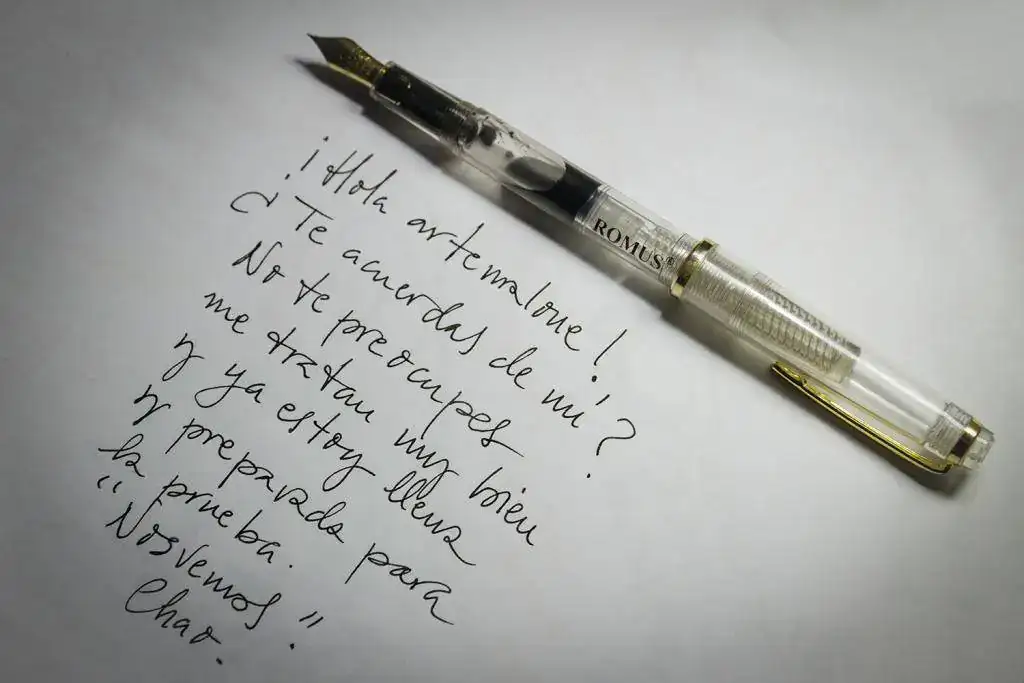 ¡Hola artemalone!
¿Te acuerdas de mí?
No te preocupes
me tratan muy bien
y ya estoy llena
y preparada para
la prueba.
"Nosvemos"
Chao.
ROMUS®